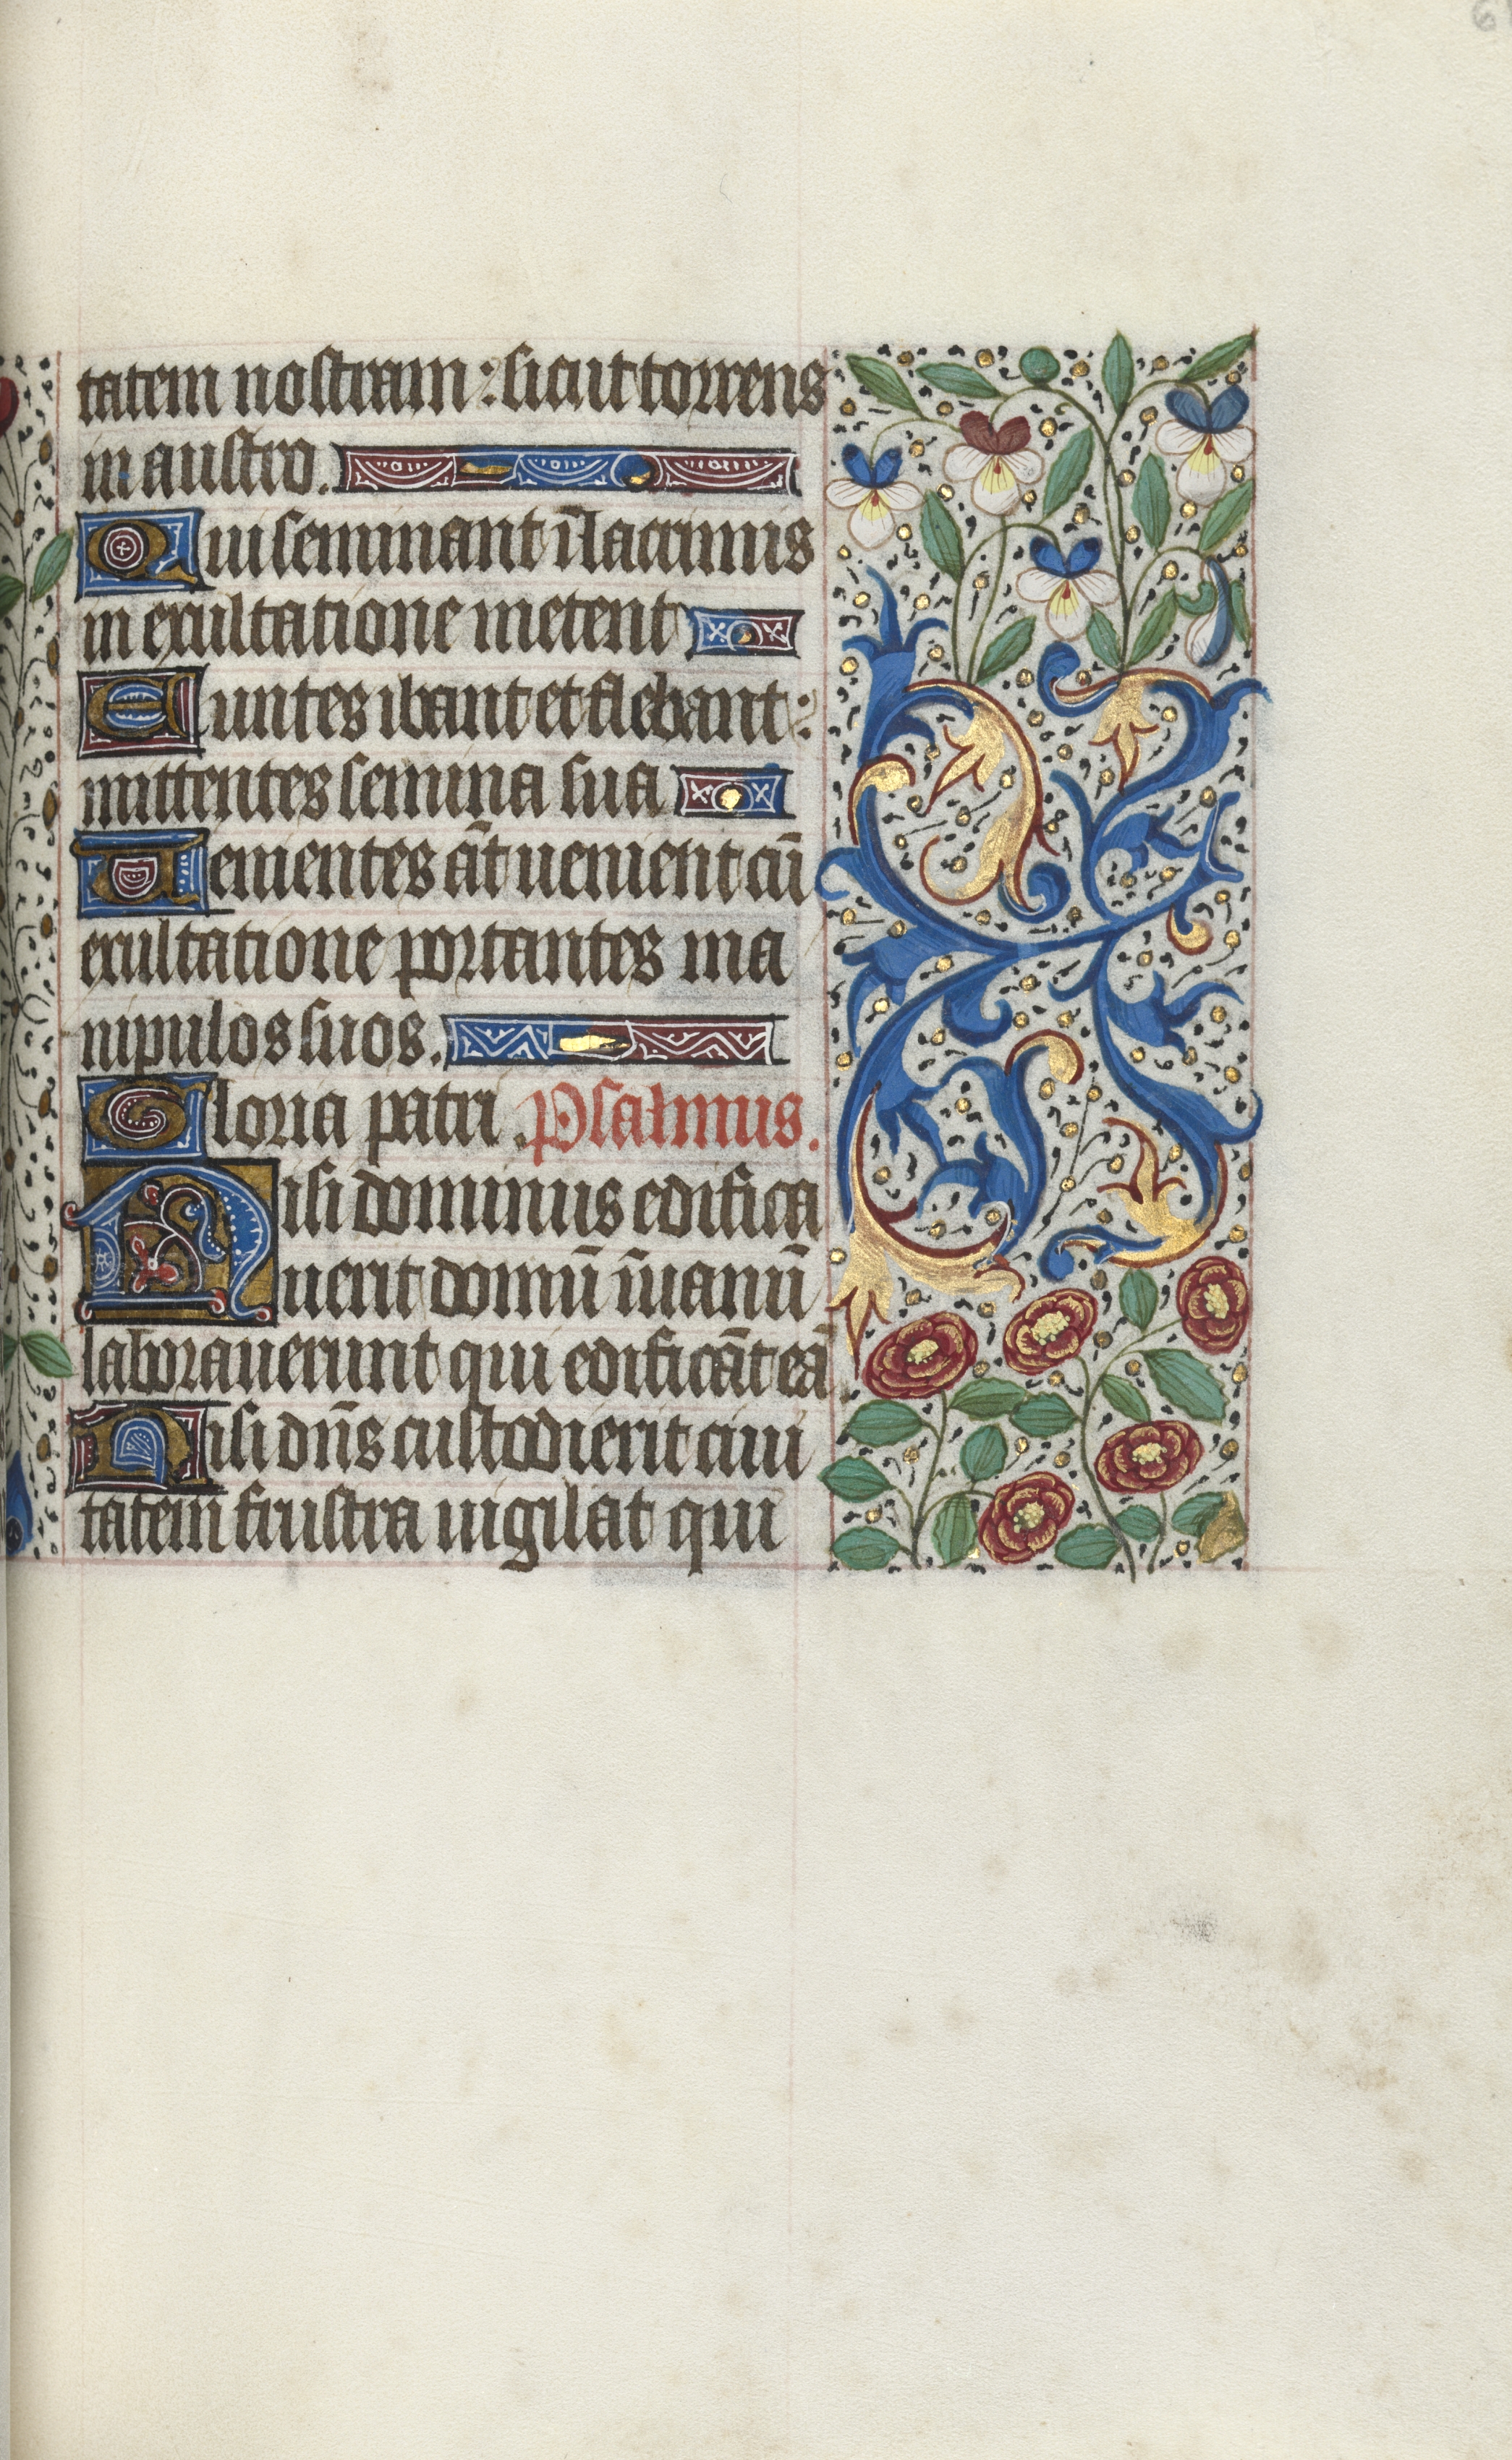 tatem nostram : sicut torrens
in austro.
Qui seminant ī lacrimis
in exultatione metent
Euntes ibant et flebant :
mittentes semina sua
Uenientes āt uenient cū
exultatione portantes ma
nipulos suos.
Gloria patri . Psalmus.
Nisi dominus edifica
uerit domū ī uanū
laborauerunt qui edificāt eā
Nisi dn̄s custodierit ciui
tatem frustra uigilat qui